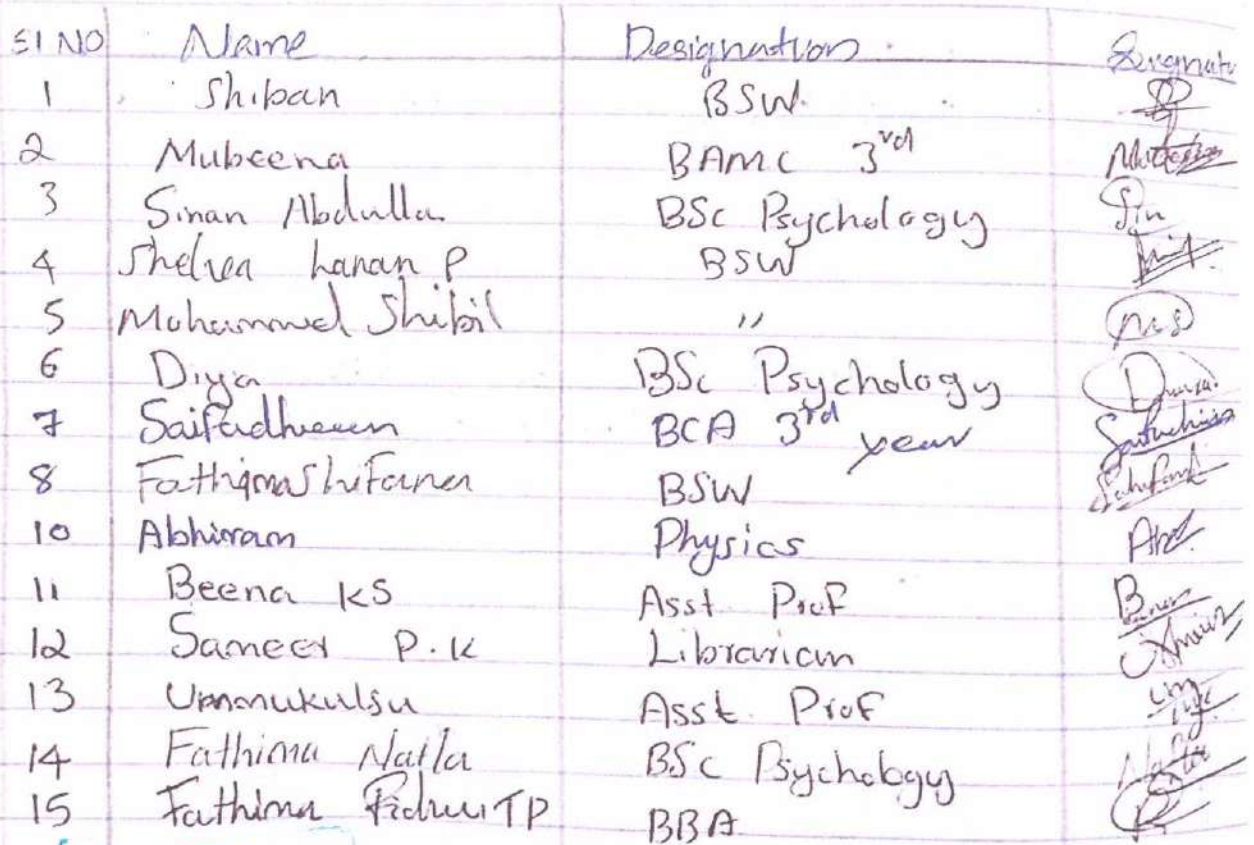 SI NO Name Designation
1 Shiban BSW
2 Mubeena BAMC 3rd
3 Sinan Abdulla BSc Psychology Sin
4 hanan P BSW
5 Mohammed Shibil "
6 Diya BSc Psychology
7 BCA 3rd year
8 BSW
10 Abhiram Physics
11 Beena KS Asst Prof
12 Sameer P.K Librarian
13 Ummukulsu Asst Prof
14 Fathima Nafla BSc Psychology
15 Fathima TP BBA